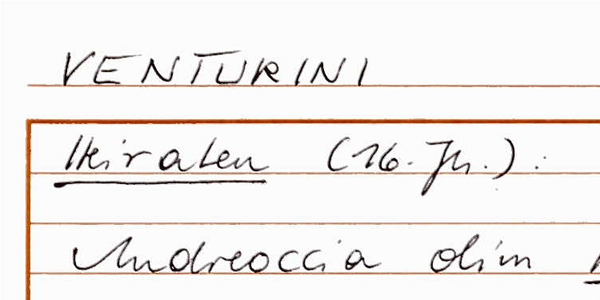 VENTURINI
Heiraten (16. Jh.):
Andreoccia olim